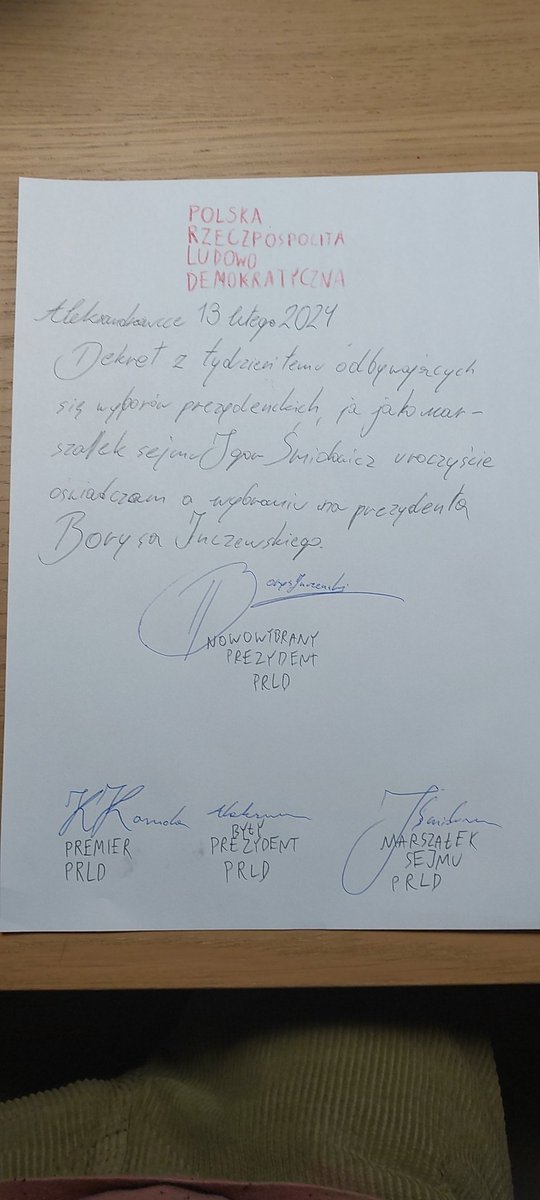 POLSKA
RZECZPOSPOLITA
LUDOWO
DEMOKRATYCZNA
13 lutego 2024
Dekret z tydzień temu odbywających
się wyborów prezydenckich, ja jako mar-
szałek sejmu Igor uroczyście
oświadczam o wybraniu na prezydenta
Borysa Juczewskiego.
NOWOWYBRANY
PREZYDENT
PRLD
PREMIER
PRLD
BYŁY
PREZYDENT
PRLD
MARSZAŁEK
SEJMU
PRLD